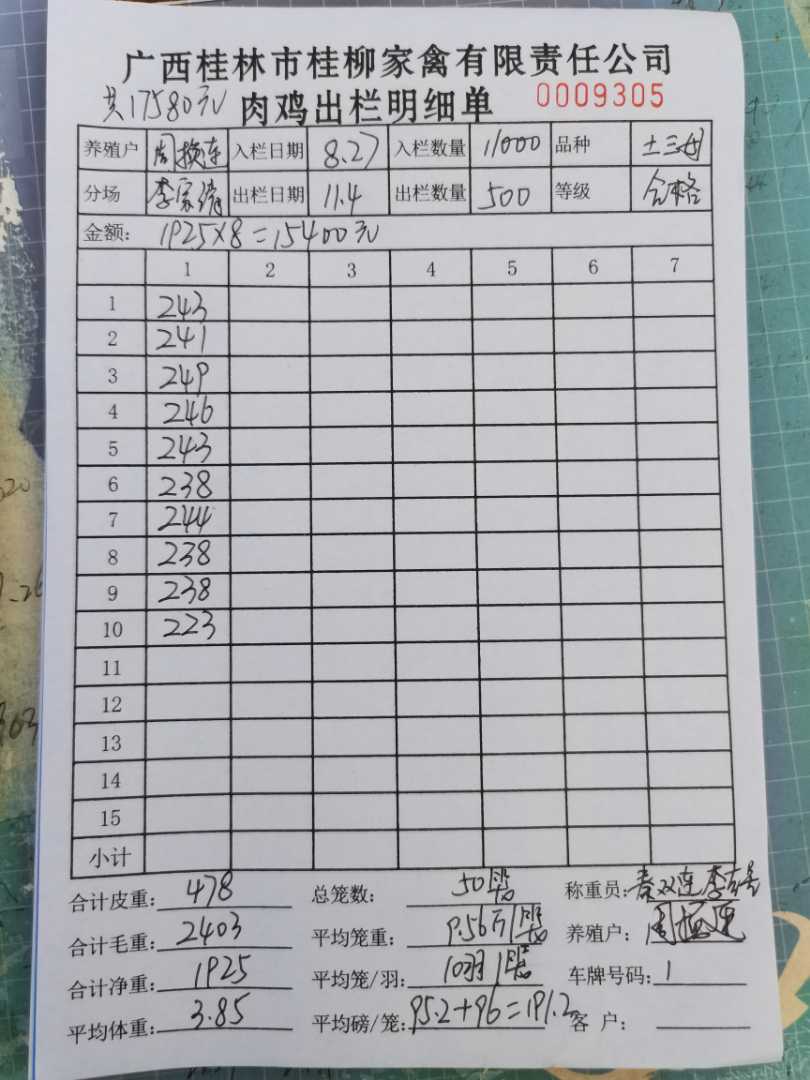 广西桂林市桂柳家禽有限责任公司
共17580元 肉鸡出栏明细单 0009305
养殖户 周 连 入栏日期 8.27 入栏数量 11000 品种 土三
分场 李家 出栏日期 11.4 出栏数量 500 等级 合格
金额: 1925×8=15400元
1 2 3 4 5 6 7
1 243
2 241
3 249
4 246
5 243
6 238
7 244
8 238
9 238
10 223
11
12
13
14
15
小计
合计皮重: 478 总笼数: 50 称重员: 秦双连 李
合计毛重: 2403 平均笼重: 9.56 养殖户: 周 连
合计净重: 1925 平均笼/羽: 10羽 车牌号码: 1
平均体重: 3.85 平均磅/笼: 95.2+96=191.2 客 户: